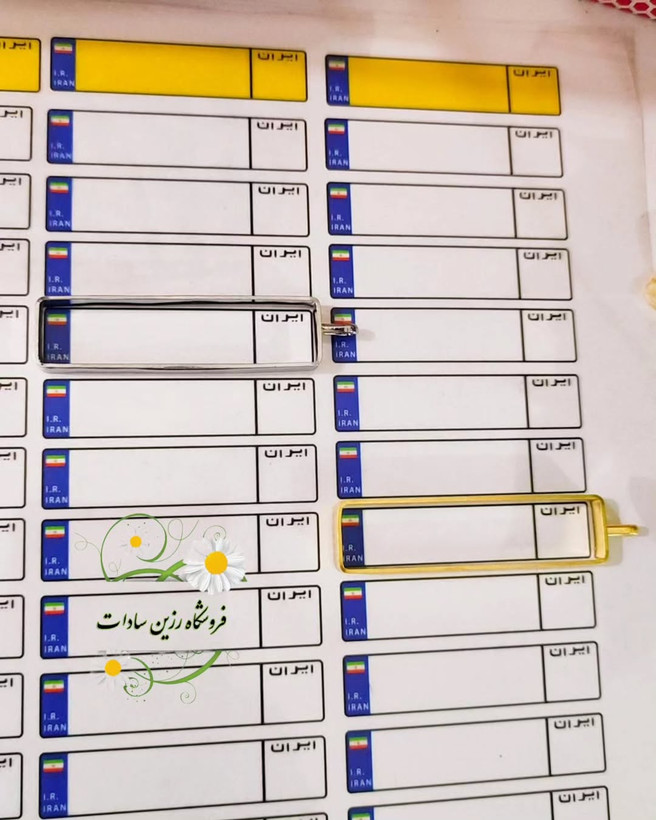 ایران
I.R.
IRAN
ایران
I.R.
IRAN
ایران
I.R.
IRAN
ایران
I.R.
IRAN
ایران
I.R.
IRAN
ایران
I.R.
IRAN
ایران
I.R.
IRAN
ایران
I.R.
IRAN
ایران
I.R.
IRAN
ایران
I.R.
IRAN
ایران
I.R.
IRAN
فروشگاه رزین سادات
ایران
I.R.
IRAN
ایران
I.R.
IRAN
ایران
I.R.
IRAN
ایران
I.R.
IRAN
ایران
I.R.
IRAN
ایران
I.R.
IRAN
ایران
I.R.
IRAN
ایران
I.R.
IRAN
ایران
I.R.
IRAN
ایران
I.R.
IRAN
ایران
I.R.
IRAN
ایران